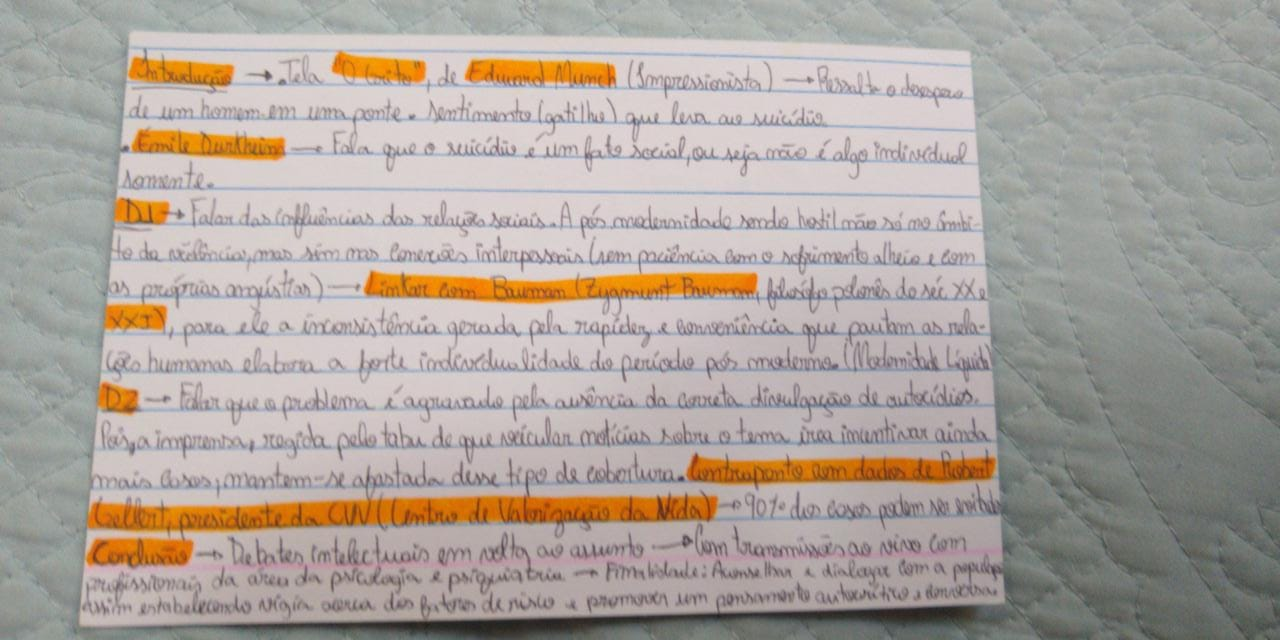 Introdução → Tela "O Grito", de Eduard Munch (Impressionista) → Ressalta o desespero
de um homem em uma ponte. sentimento (gatilho) que leva ao suicídio.
. Émile Durkheim → Fala que o suicídio é um fato social, ou seja não é algo individual
somente.
D1 → Falar das influências das relações sociais. A pós modernidade sendo hostil não só no âmbi-
to da violência, mas sim nas conexões interpessoais (sem paciência com o sofrimento alheio e com
as próprias angústias) → Linkar com Bauman (Zygmunt Bauman, filósofo polonês do séc XX e
XXI), para ele a inconsistência gerada pela rapidez e conveniência que pautam as rela-
ções humanas elabora a forte individualidade do período pós moderno. (Modernidade Líquida)
D2 → Falar que o problema é agravado pela ausência da correta divulgação de autocídios.
Pois, a imprensa, regida pelo tabu de que veicular notícias sobre o tema irea incentivar ainda
mais casos, mantem-se afastada desse tipo de cobertura. Contraponto com dados de Robert
Gellert, presidente da CVV (Centro de Valorização da Vida) → 90% dos casos podem ser evitados
Conclusão → Debates intelectuais em volta ao assunto → Com transmissões ao vivo com
profissionais da área da psicologia e psiquiatria → Finalidade: Aconselhar e dialogar com a população
assim estabelecendo vigia acerca dos fatores de risco e promover um pensamento autocrítico e